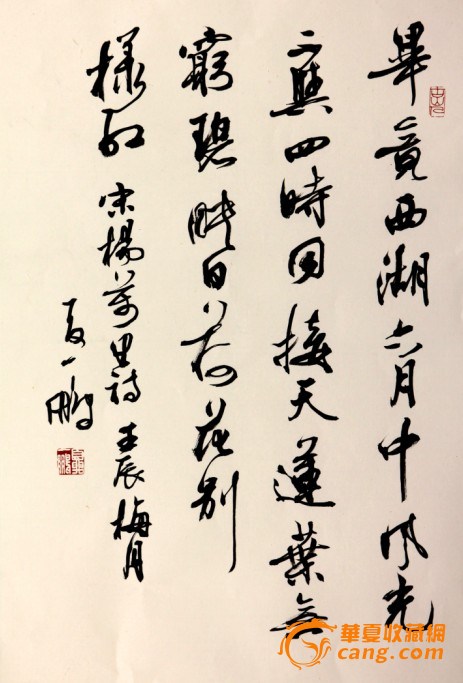 畢竟西湖六月中風光
不與四時同接天蓮葉無
窮碧映日荷花別
樣紅 宋楊萬里詩 壬辰梅月
夏一鵬
華夏收藏網
cang.com